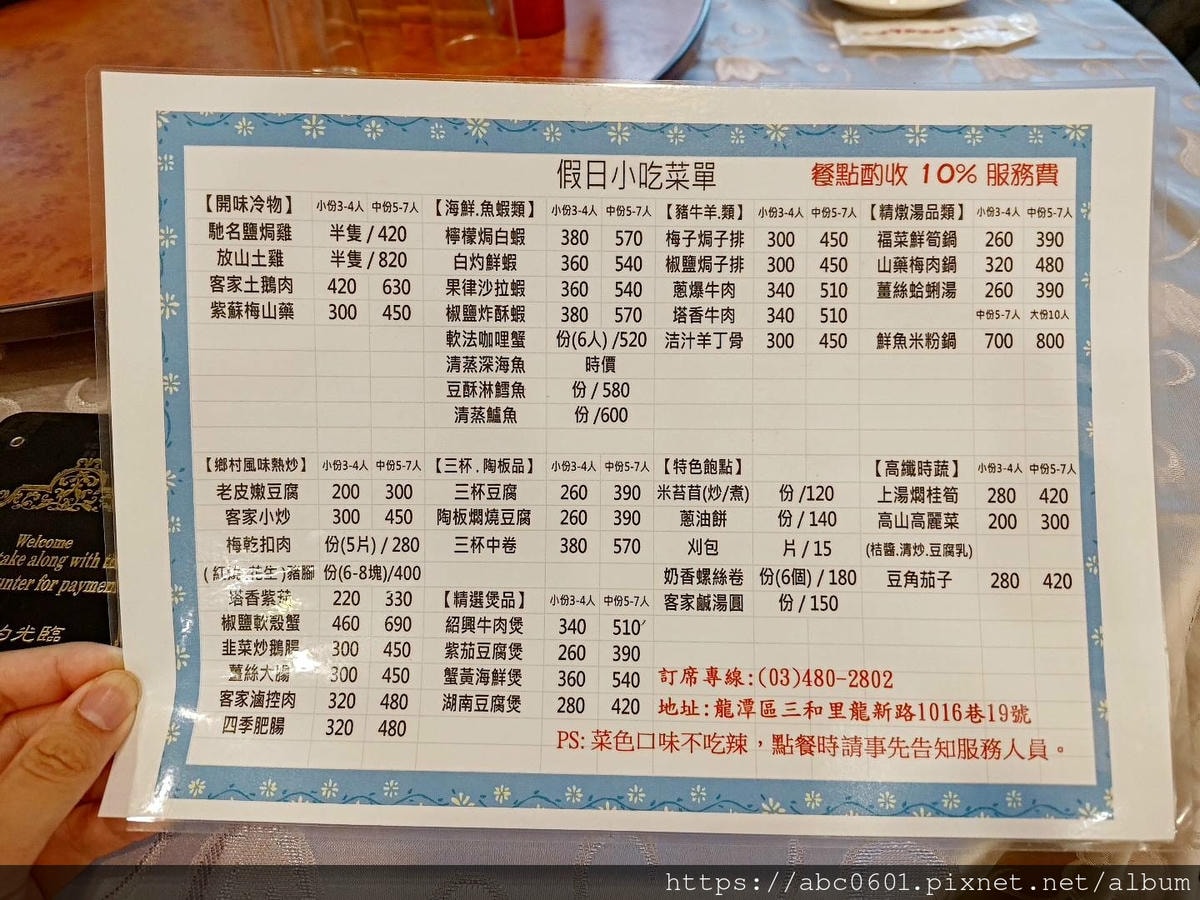 假日小吃菜單 餐點酌收 10% 服務費
【開味冷物】 小份3-4人 中份5-7人
馳名鹽焗雞 半隻 / 420
放山土雞 半隻 / 820
客家土鵝肉 420 630
紫蘇梅山藥 300 450
【海鮮.魚蝦類】 小份3-4人 中份5-7人
檸檬焗白蝦 380 570
白灼鮮蝦 360 540
果律沙拉蝦 360 540
椒鹽炸酥蝦 380 570
軟法咖哩蟹 份(6人) /520
清蒸深海魚 時價
豆酥淋鱈魚 份 / 580
清蒸鱸魚 份 /600
【豬牛羊.類】 小份3-4人 中份5-7人
梅子焗子排 300 450
椒鹽焗子排 300 450
蔥爆牛肉 340 510
塔香牛肉 340 510
洁汁羊丁骨 300 450
【精燉湯品類】 小份3-4人 中份5-7人
福菜鮮筍鍋 260 390
山藥梅肉鍋 320 480
薑絲蛤蜊湯 260 390
中份5-7人 大份10人
鮮魚米粉鍋 700 800
【鄉村風味熱炒】 小份3-4人 中份5-7人
老皮嫩豆腐 200 300
客家小炒 300 450
梅乾扣肉 份(5片) / 280
(紅燒.花生)豬腳 份(6-8塊)/400
塔香紫茄 220 330
椒鹽軟殼蟹 460 690
韭菜炒鵝腸 300 450
薑絲大腸 300 450
客家滷控肉 320 480
四季肥腸 320 480
【三杯.陶板品】 小份3-4人 中份5-7人
三杯豆腐 260 390
陶板燜燒豆腐 260 390
三杯中卷 380 570
【精選煲品】 小份3-4人 中份5-7人
紹興牛肉煲 340 510
紫茄豆腐煲 260 390
蟹黃海鮮煲 360 540
湖南豆腐煲 280 420
【特色飽點】
米苔苜(炒/煮) 份 /120
蔥油餅 份 / 140
刈包 片 / 15
奶香螺絲卷 份(6個) / 180
客家鹹湯圓 份 / 150
【高纖時蔬】 小份3-4人 中份5-7人
上湯燜桂筍 280 420
高山高麗菜 200 300
(桔醬.清炒.豆腐乳)
豆角茄子 280 420
訂席專線:(03)480-2802
地址:龍潭區三和里龍新路1016巷19號
PS: 菜色口味不吃辣，點餐時請事先告知服務人員。
Welcome
take along with
unter for paymen
光臨
https://abc0601.pixnet.net/album